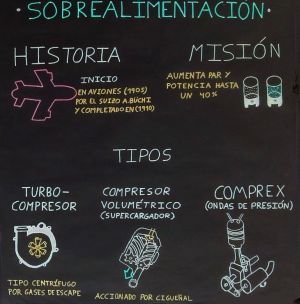 · SOBREALIMENTACIÓN ·
HISTORIA
INICIO
EN AVIONES (1905)
POR EL SUIZO A.BÜCHI
Y COMPLETADO EN (1910)
MISIÓN
AUMENTA PAR Y
POTENCIA HASTA
UN 40%
TIPOS
TURBO-
COMPRESOR
TIPO CENTRÍFUGO
POR GASES DE ESCAPE
COMPRESOR
VOLUMÉTRICO
(SUPERCARGADOR)
ACCIONADO POR CIGUEÑAL
COMPREX
(ONDAS DE PRESIÓN)